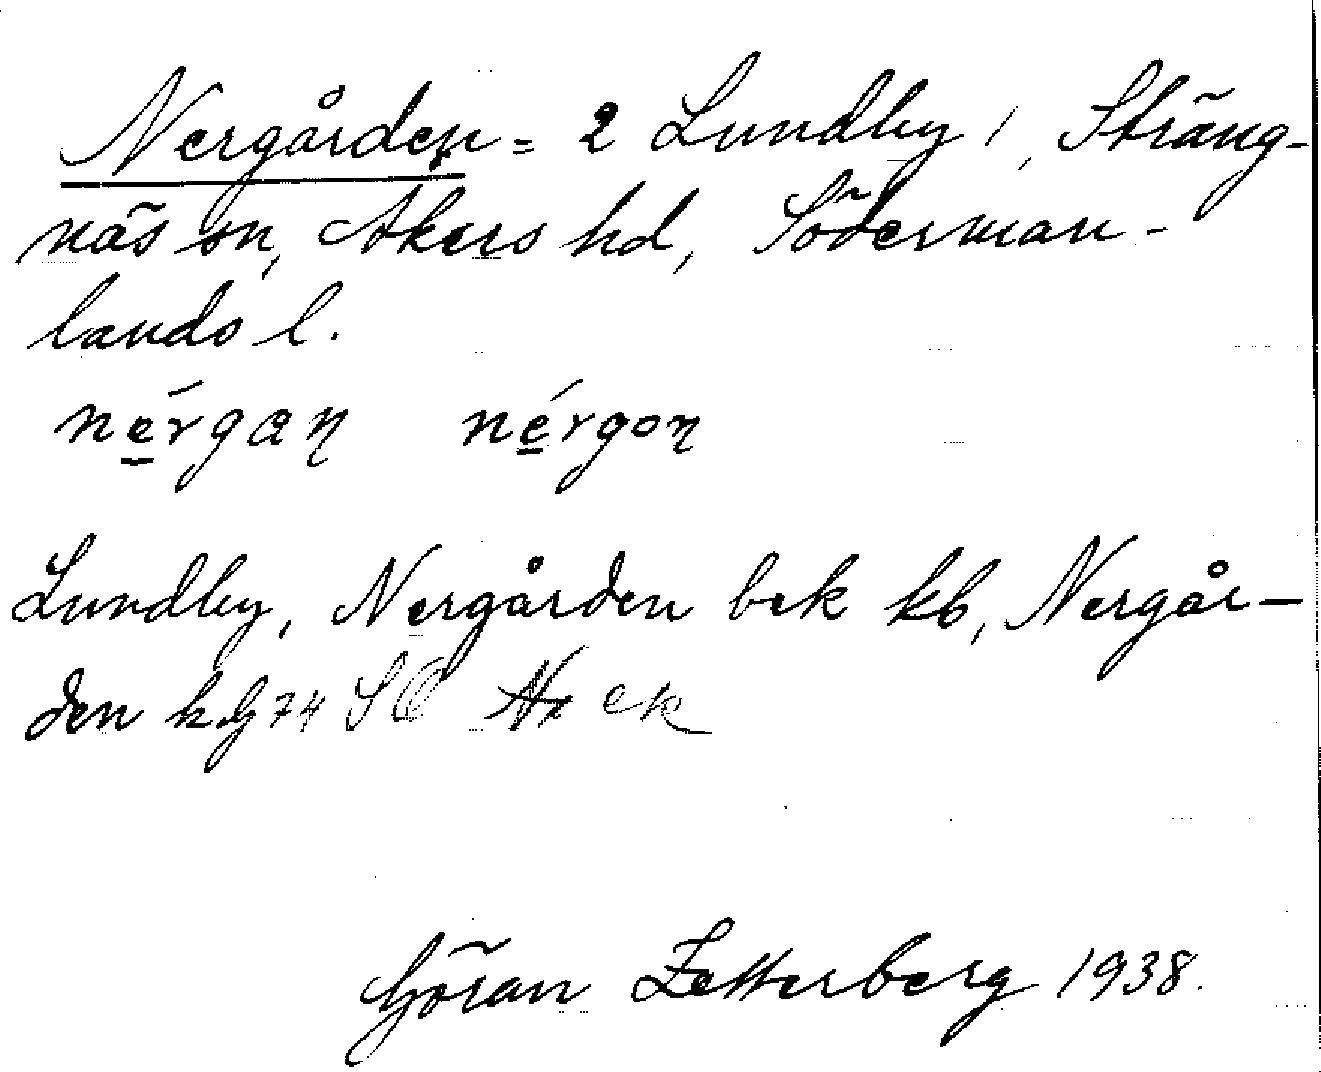 Nergården = 2 Lundby 1, Sträng-
näs sn, Åkers hd, Söderman-
lands l.
nérgan nérgon
Lundby, Nergården bek kb, Nergår-
den k
Göran Zetterberg 1938.